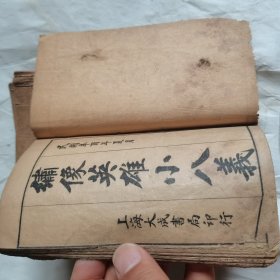 繡像英雄小八義
上海大成書局印行